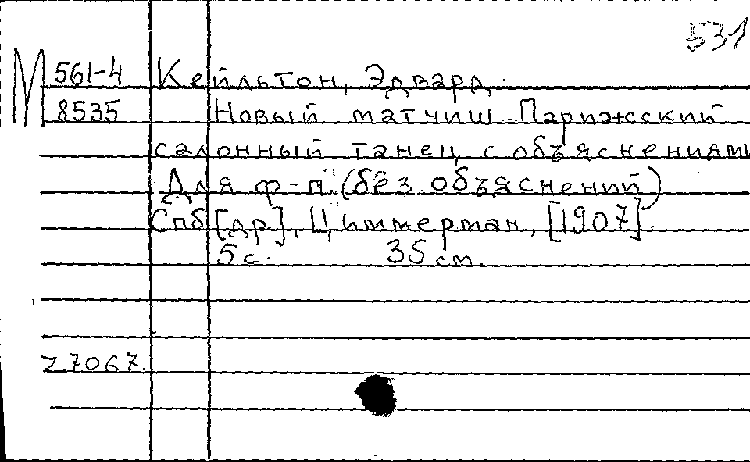 531
М 561-4 Кейльтон, Эдвард.
8535 Новый матчиш. Парижский
салонный танец с объяснениями
Для ф-п. (без объяснений)
Спб [др], Циммерман, [1907]
5 с. 35 см.
Z7067.